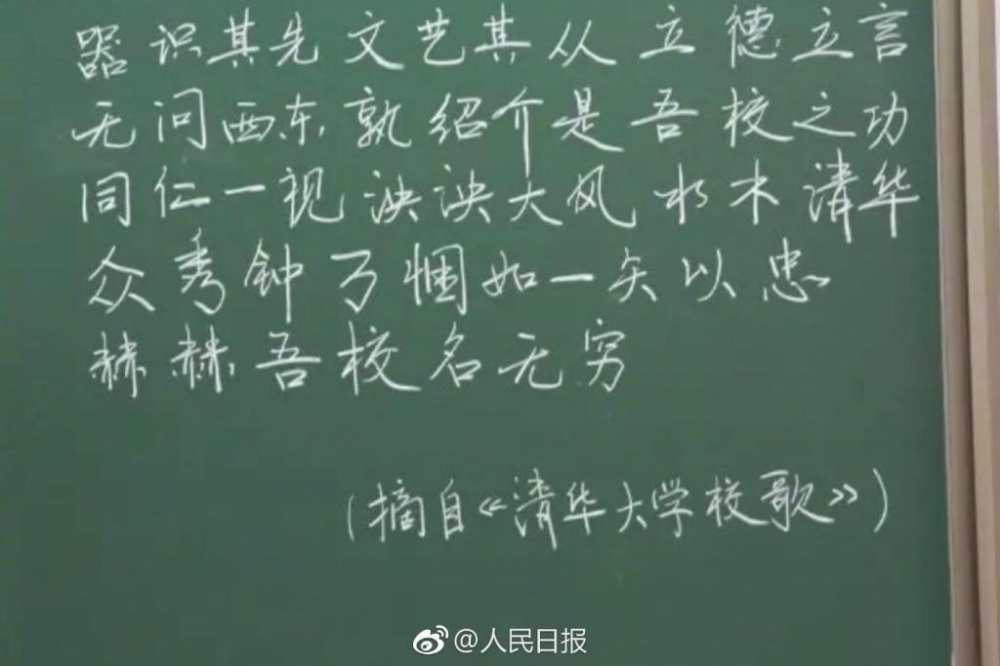 器识其先文艺其从立德立言
无问西东孰绍介是吾校之功
同仁一视泱泱大风水木清华
众秀钟万悃如一矢以忠
赫赫吾校名无穷
(摘自《清华大学校歌》)
@人民日报